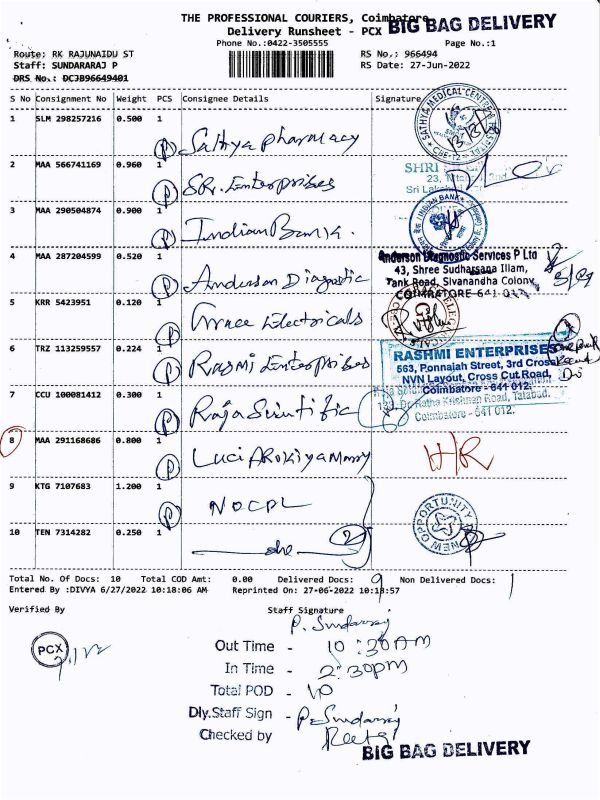 THE PROFESSIONAL COURIERS, Coimbatore
BIG BAG DELIVERY
Delivery Runsheet - PCX
Phone No.:0422-3505555
Page No.:1
Route: RK RAJUNAIDU ST
RS No.: 966494
Staff: SUNDARARAJ P
RS Date: 27-Jun-2022
DRS No.: DCJB96649401
S No Consignment No Weight PCS Consignee Details Signature
1 SLM 298257216 0.500 1
P Sathya Pharmacy
SATHYA MEDICAL CENTRE
2 MAA 566741169 0.960 1
P SR. Enterprises
SHRI
3 MAA 290504874 0.900 1
P Indian Bank.
INDIAN BANK
4 MAA 287204599 0.520 1
P Anderson Diagnostic
Anderson Diagnostic Services P Ltd
43, Shree Sudharsana Illam,
Tank Road, Sivanandha Colony,
COIMBATORE-641 012
5 KRR 5423951 0.120 1
P Grace Electricals
6 TRZ 113259557 0.224 1
P Rasmi Enterprises
RASHMI ENTERPRISES
563, Ponnaiah Street, 3rd Cross
NVN Layout, Cross Cut Road,
Coimbatore - 641 012.
7 CCU 100081412 0.300 1
P Raja Scientific
Dr. Radha Krishnan Road, Tatabad,
Coimbatore - 641 012.
8 MAA 291168686 0.800 1
P Luci AROKiyaMary
9 KTG 7107683 1.200 1
P NOCPL
NEW OPPORTUNITY
10 TEN 7314282 0.250 1
2
Total No. Of Docs: 10 Total COD Amt: 0.00 Delivered Docs: 9 Non Delivered Docs: 1
Entered By :DIVYA 6/27/2022 10:18:06 AM Reprinted On: 27-06-2022 10:18:57
Verified By
Staff Signature
P. Sundarraj
PCX
Out Time - 10:30AM
In Time - 2:30pm
Total POD - 10
Dly.Staff Sign - P. Sundarraj
Checked by
BIG BAG DELIVERY